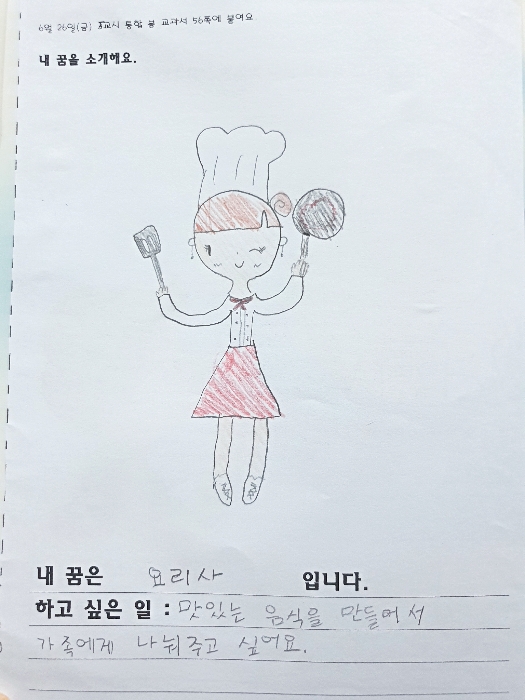 6월 26일(금) 3교시 통합 봄 교과서 56쪽에 붙여요
내 꿈을 소개해요.
내 꿈은 요리사 입니다.
하고 싶은 일 : 맛있는 음식을 만들어서
가족에게 나눠주고 싶어요.